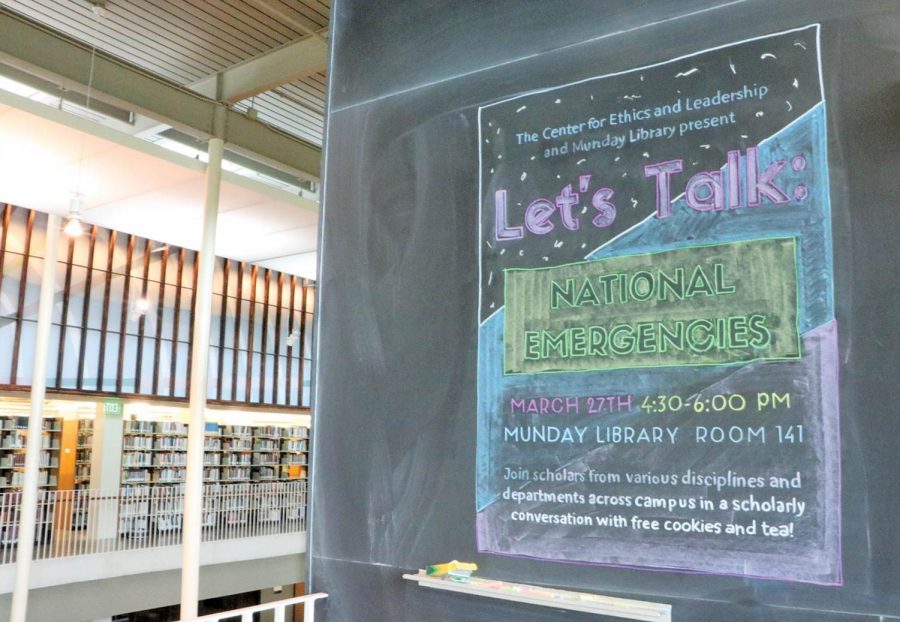 The Center for Ethics and Leadership
and Munday Library present
Let's Talk:
NATIONAL
EMERGENCIES
MARCH 27TH 4:30-6:00 PM
MUNDAY LIBRARY ROOM 141
Join scholars from various disciplines and
departments across campus in a scholarly
conversation with free cookies and tea!
EXIT